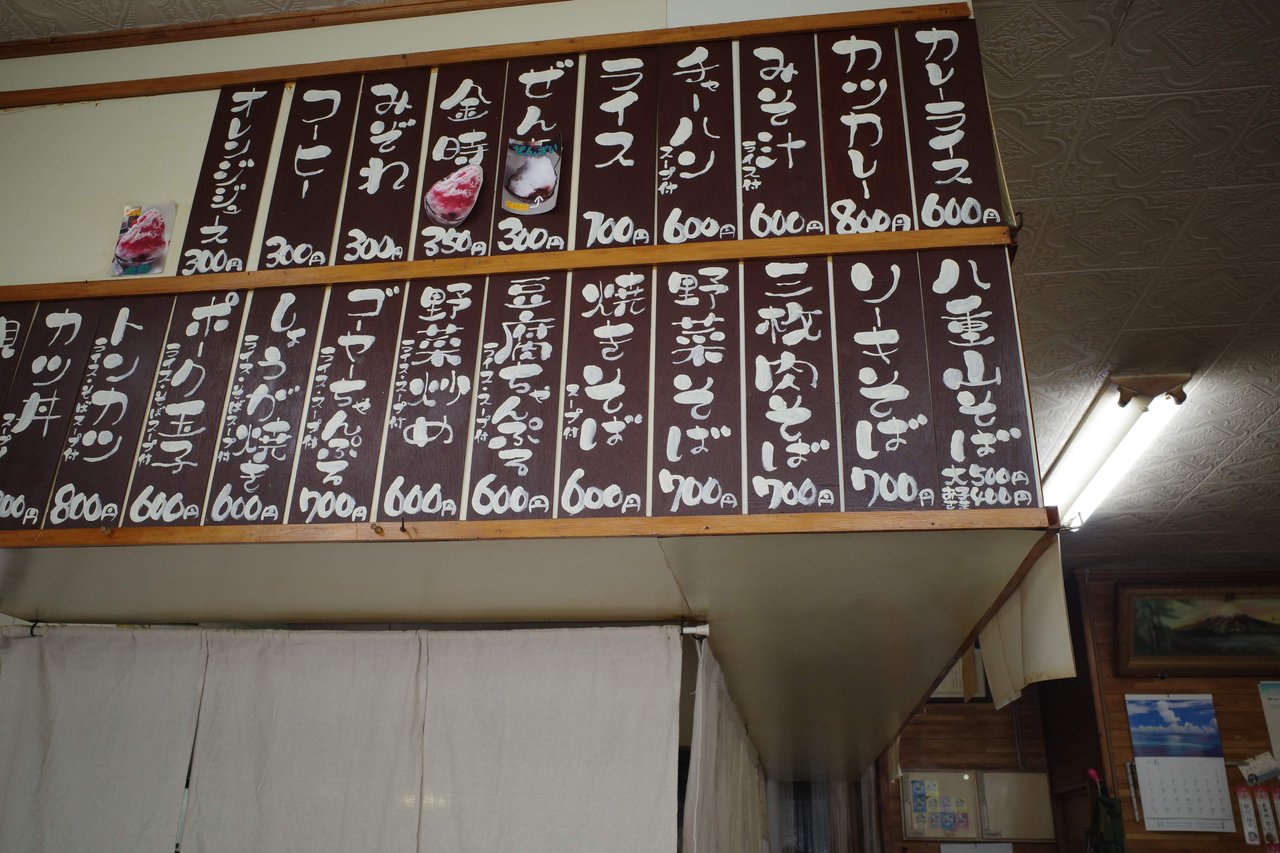 カレーライス 600円
カツカレー 800円
みそ汁 ライス付 600円
チャーハン スープ付 600円
ライス 700円
ぜん 300円
ぜんざい
金時 350円
みぞれ 300円
コーヒー 300円
オレンジジュース 300円
八重山そば 大500円 400円
ソーキそば 700円
三枚肉そば 700円
野菜そば 700円
焼きそば スープ付 600円
豆腐ちゃんぷる ライス・スープ付 600円
野菜炒め ライス・スープ付 600円
ゴーヤーちゃんぷる ライス・スープ付 700円
しょうが焼き ライス・そばスープ付 600円
ポーク玉子 ライス・そばスープ付 600円
トンカツ ライス・そばスープ付 800円
カツ丼